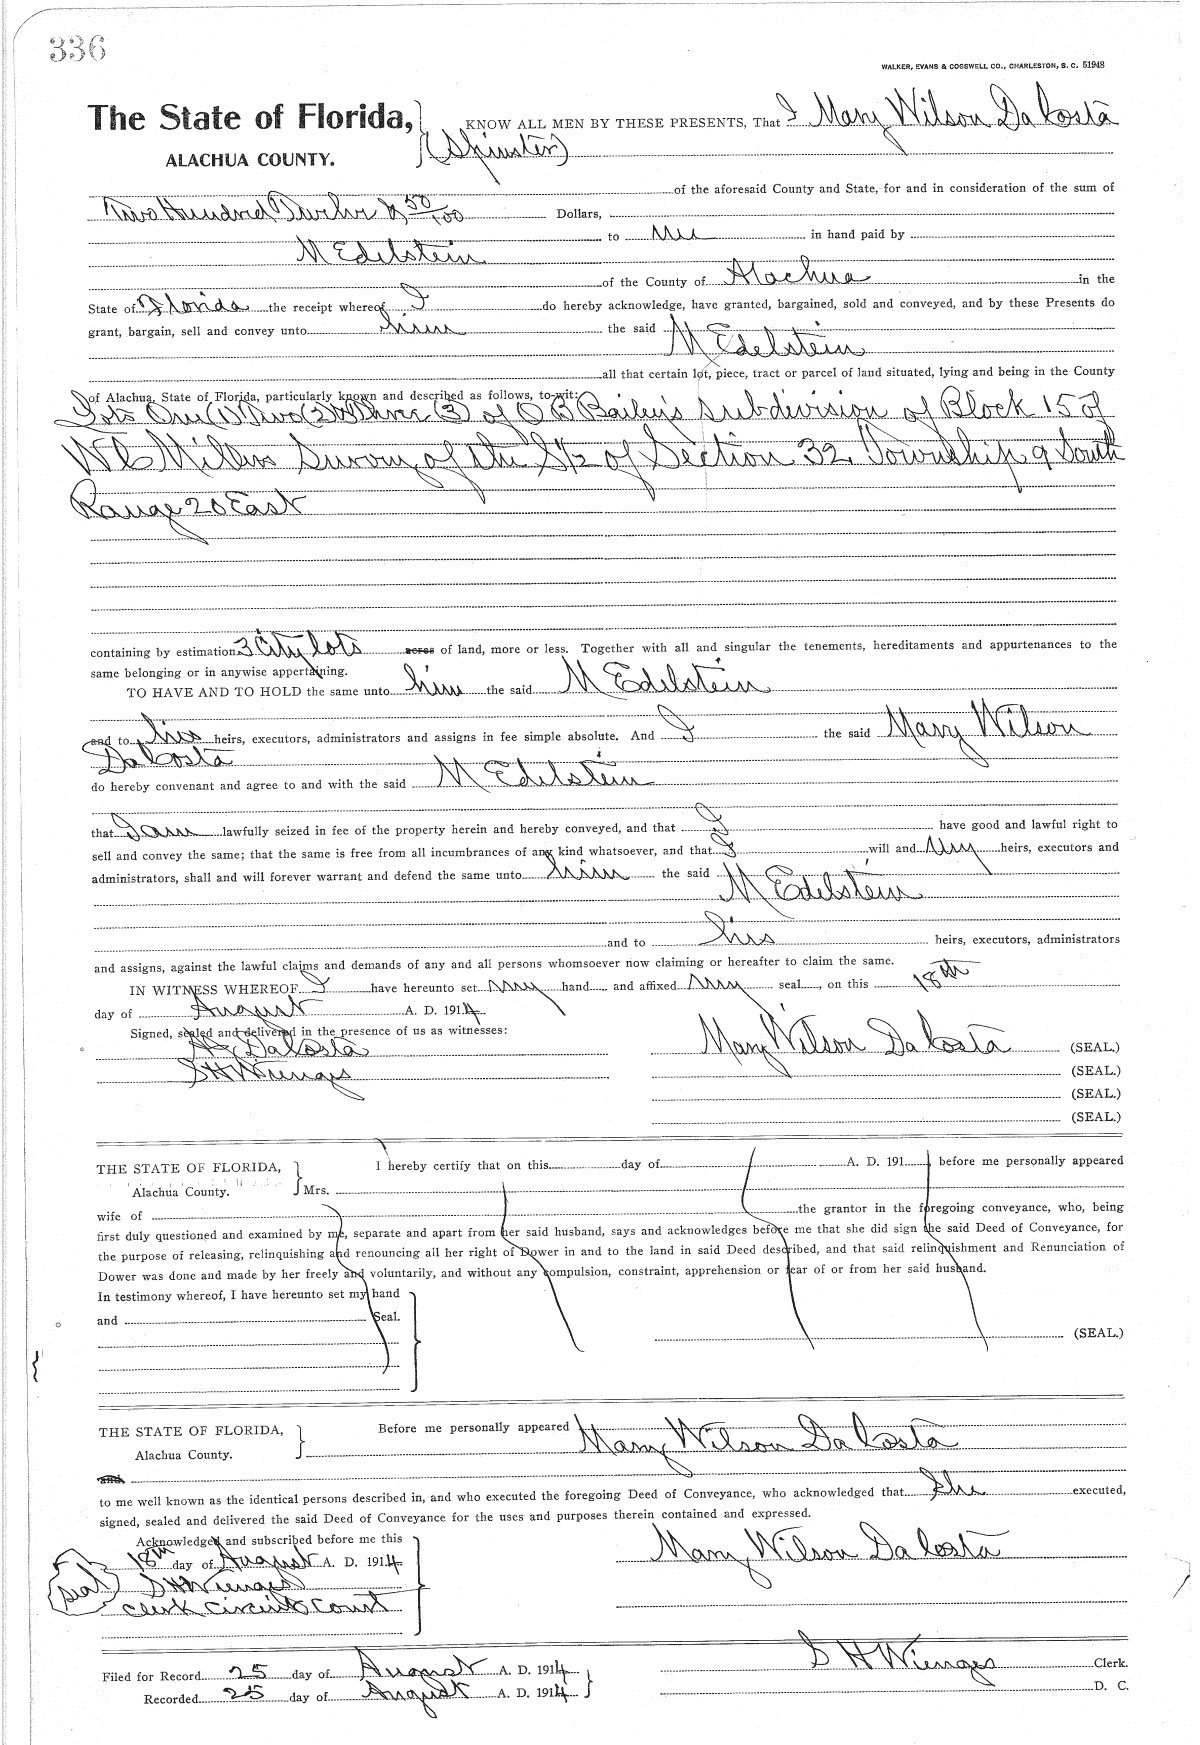 336
WALKER, EVANS & COGSWELL CO., CHARLESTON, S. C. 51948
The State of Florida, KNOW ALL MEN BY THESE PRESENTS, That I Mary Wilson Da Costa
ALACHUA COUNTY. (Spinster)
of the aforesaid County and State, for and in consideration of the sum of
Two Hundred Twelve & 50/100 Dollars,
to me in hand paid by
M Edelstein
of the County of Alachua in the
State of Florida the receipt whereof I do hereby acknowledge, have granted, bargained, sold and conveyed, and by these Presents do
grant, bargain, sell and convey unto him the said M Edelstein
all that certain lot, piece, tract or parcel of land situated, lying and being in the County
of Alachua, State of Florida, particularly known and described as follows, to-wit:
Lots One (1) Two (2) & Three (3) of O B Bailey's subdivision of Block 15 of
W C Millers Survey of the S 1/2 of Section 32, Township 9 South
Range 20 East
containing by estimation 3 City lots acres of land, more or less. Together with all and singular the tenements, hereditaments and appurtenances to the
same belonging or in anywise appertaining.
TO HAVE AND TO HOLD the same unto him the said M Edelstein
and to his heirs, executors, administrators and assigns in fee simple absolute. And I the said Mary Wilson
Da Costa
do hereby convenant and agree to and with the said M Edelstein
that I am lawfully seized in fee of the property herein and hereby conveyed, and that I have good and lawful right to
sell and convey the same; that the same is free from all incumbrances of any kind whatsoever, and that I will and my heirs, executors and
administrators, shall and will forever warrant and defend the same unto him the said M Edelstein
and to his heirs, executors, administrators
and assigns, against the lawful claims and demands of any and all persons whomsoever now claiming or hereafter to claim the same.
IN WITNESS WHEREOF I have hereunto set my hand and affixed my seal, on this 18th
day of August A. D. 1914
Signed, sealed and delivered in the presence of us as witnesses:
Da Costa Mary Wilson Da Costa (SEAL.)
S H Wienges (SEAL.)
(SEAL.)
(SEAL.)
THE STATE OF FLORIDA, I hereby certify that on this day of A. D. 191 before me personally appeared
Alachua County. Mrs.
wife of the grantor in the foregoing conveyance, who, being
first duly questioned and examined by me, separate and apart from her said husband, says and acknowledges before me that she did sign the said Deed of Conveyance, for
the purpose of releasing, relinquishing and renouncing all her right of Dower in and to the land in said Deed described, and that said relinquishment and Renunciation of
Dower was done and made by her freely and voluntarily, and without any compulsion, constraint, apprehension or fear of or from her said husband.
In testimony whereof, I have hereunto set my hand
and Seal.
(SEAL.)
THE STATE OF FLORIDA, Before me personally appeared Mary Wilson Da Costa
Alachua County.
and
to me well known as the identical persons described in, and who executed the foregoing Deed of Conveyance, who acknowledged that she executed,
signed, sealed and delivered the said Deed of Conveyance for the uses and purposes therein contained and expressed.
Acknowledged and subscribed before me this
18th day of August A. D. 1914 Mary Wilson Da Costa
seal S H Wienges
Clerk Circuit Court
Filed for Record 25 day of August A. D. 1914 S H Wienges Clerk.
Recorded 25 day of August A. D. 1914 D. C.